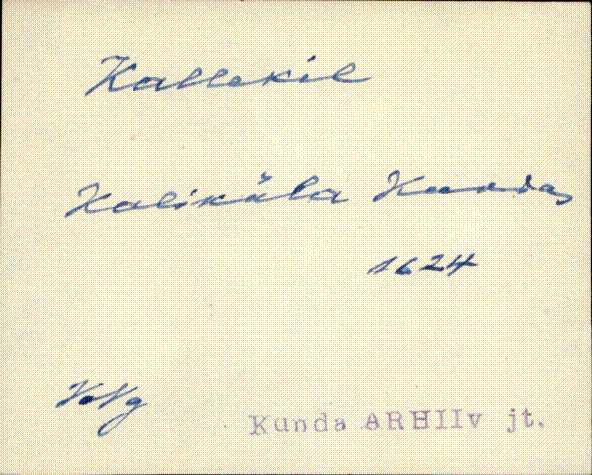 Kallekil
Kaliküla Kunda,
1624
VNg
Kunda ARHIIv jt.